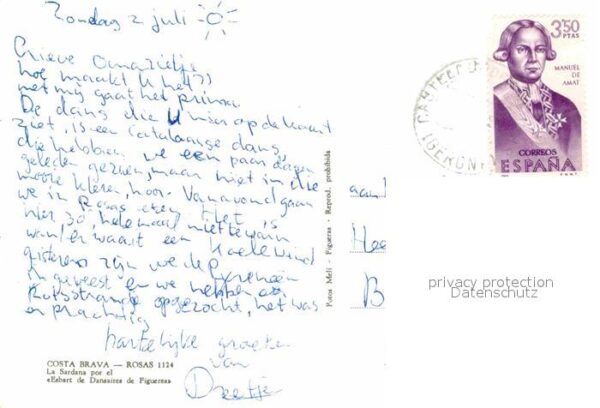 Zondag 2 juli
Lieve Omazietje
hoe maakt U het?
met mij gaat het prima
De dans die U hier op de kaart
ziet, is een Catalaanse dans,
die hebben we een paar dagen
geleden gezien, maar niet in die
mooie kleren, hoor. Vanavond gaan
we in Rosas eten. Het is
hier 30°, helemaal niet te warm
want er waait een koele wind
gisteren zijn we de Pyreneeën
in geweest en we hebben
Rotsstrandje opgezocht, het was
er prachtig
hartelijke groeten
van
Dreetje
COSTA BRAVA — ROSAS 1124
La Sardana por el
«Esbart de Dansaires de Figueras»
Fotos Melí - Figueras - Reprod. prohibida
3,50
PTAS
MANUEL
DE
AMAT
CORREOS
ESPAÑA
aan
Hee
B
privacy protection
Datenschutz